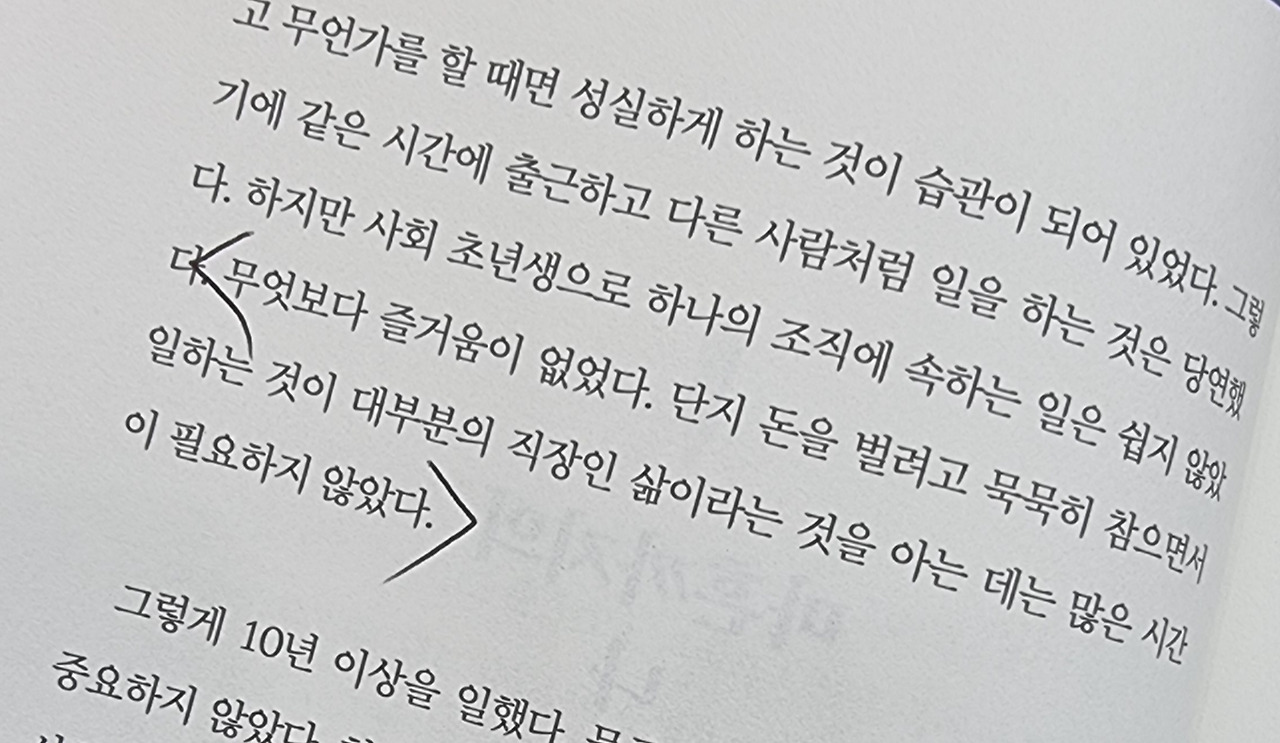 고 무언가를 할 때면 성실하게 하는 것이 습관이 되어 있었다. 그렇
기에 같은 시간에 출근하고 다른 사람처럼 일을 하는 것은 당연했
다. 하지만 사회 초년생으로 하나의 조직에 속하는 일은 쉽지 않았
다. 무엇보다 즐거움이 없었다. 단지 돈을 벌려고 묵묵히 참으면서
일하는 것이 대부분의 직장인 삶이라는 것을 아는 데는 많은 시간
이 필요하지 않았다.
그렇게 10년 이상을 일했다.
중요하지 않았다.